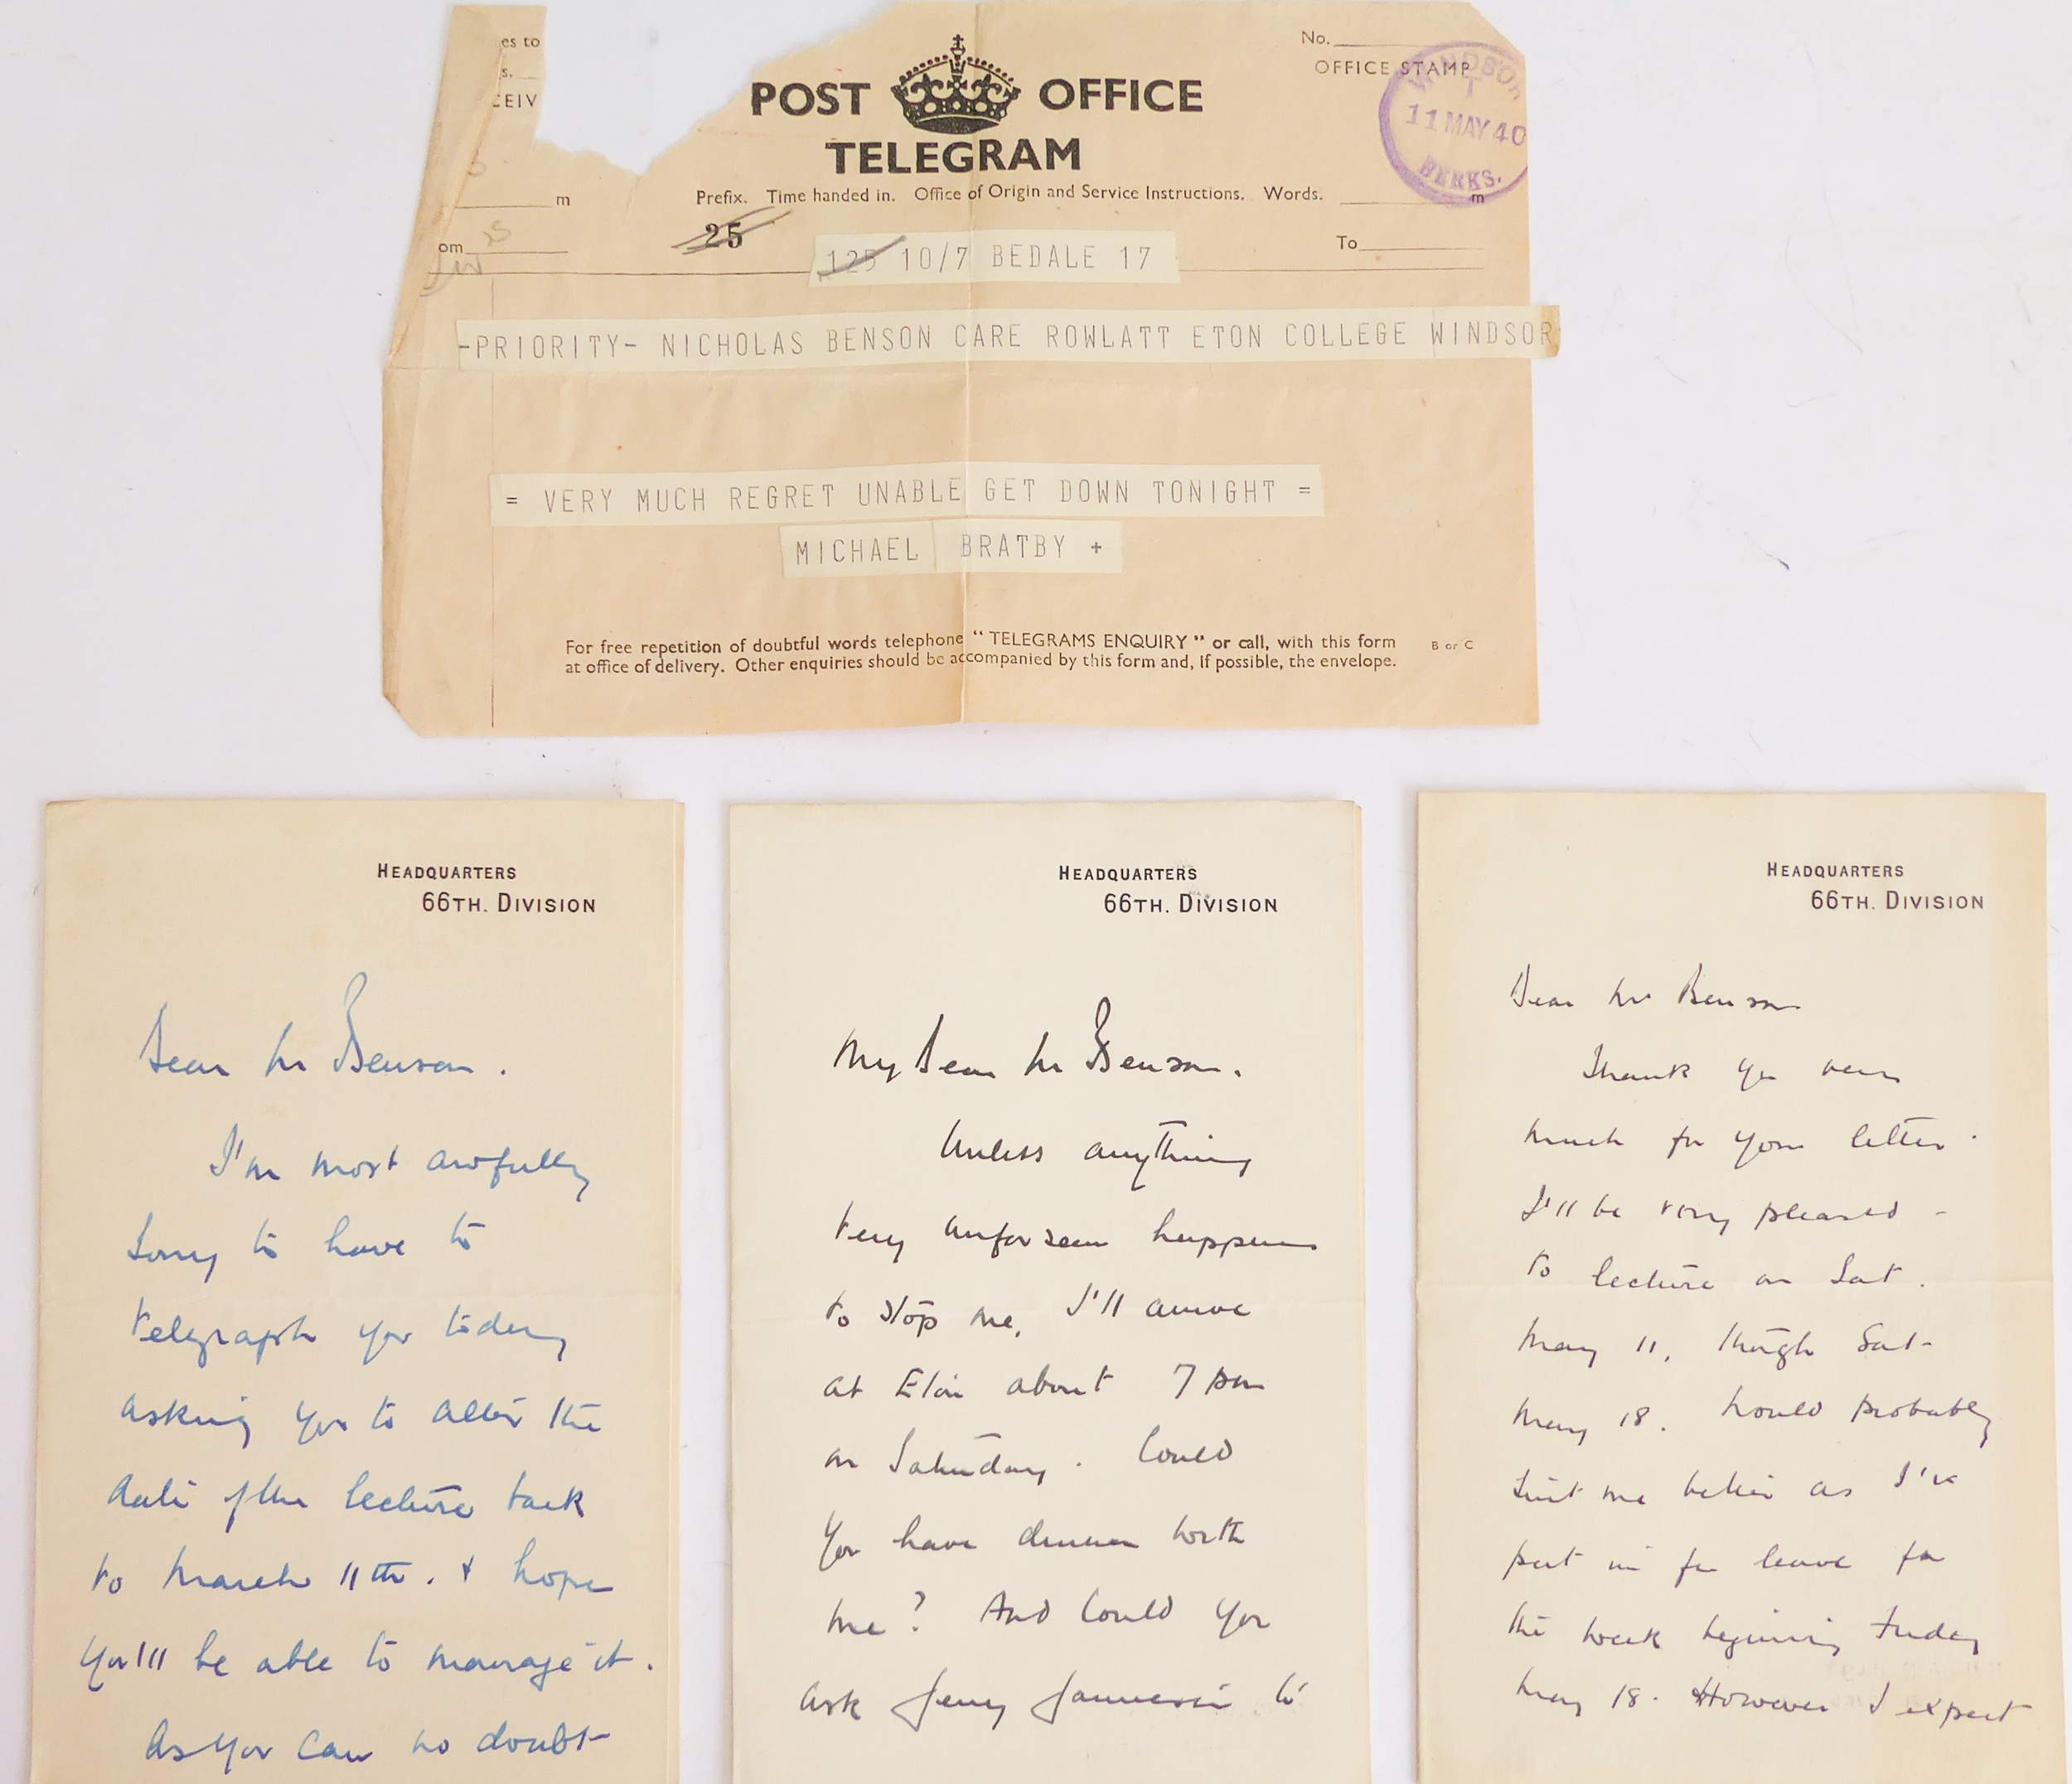 es to
s.
CEIV
POST OFFICE
TELEGRAM
No.
OFFICE STAMP
WINDSOR
T
11 MAY 40
BERKS.
m
Prefix. Time handed in. Office of Origin and Service Instructions. Words.
m
25
om
125 10/7 BEDALE 17
To
-PRIORITY- NICHOLAS BENSON CARE ROWLATT ETON COLLEGE WINDSOR
= VERY MUCH REGRET UNABLE GET DOWN TONIGHT =
MICHAEL BRATBY +
For free repetition of doubtful words telephone "TELEGRAMS ENQUIRY" or call, with this form
at office of delivery. Other enquiries should be accompanied by this form and, if possible, the envelope.
B or C
HEADQUARTERS
66TH. DIVISION
Dear Mr Benson.
I'm most awfully
sorry to have to
telegraph you today
asking you to alter the
date of the lecture back
to March 11th. & hope
you'll be able to manage it.
As you can no doubt
HEADQUARTERS
66TH. DIVISION
My Dear Mr Benson.
Unless anything
very unforseen happens
to stop me, I'll arrive
at Eton about 7 pm
on Saturday. Could
you have dinner with
me? And could you
ask Jerry to
HEADQUARTERS
66TH. DIVISION
Dear Mr Benson
Thank you very
much for your letter.
I'll be very pleased -
to lecture on Sat.
May 11, though Sat-
May 18. would probably
suit me better as I've
put in for leave for
the week begining Friday
May 18. However I expect